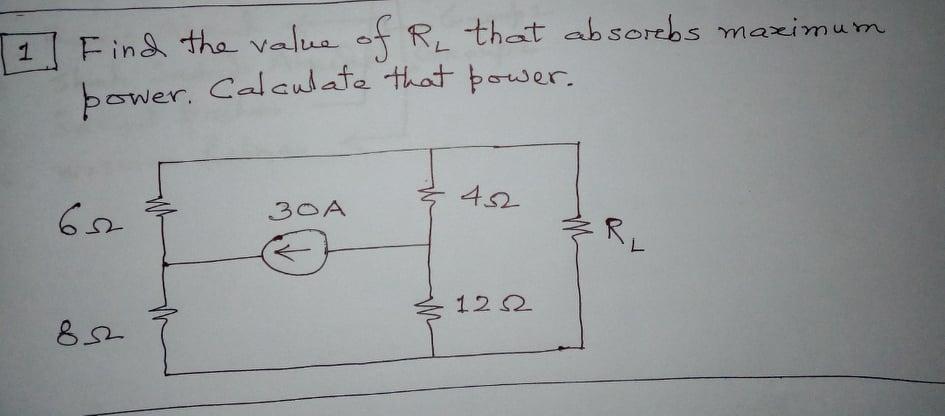 1 Find the value of R_L that absorbs maximum
power. Calculate that power.
6Ω
30A
4Ω
R_L
8Ω
12Ω